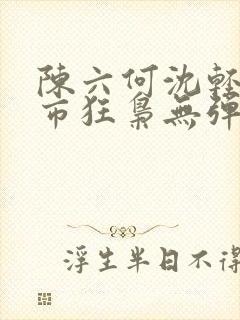 陳六何沈輕
市狂梟無彈
浮生半日不得